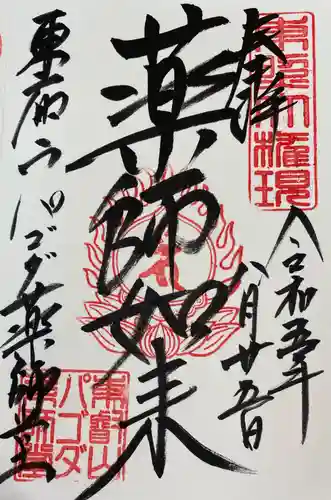 東照大権現
奉拝
令和五年
八月廿五日
薬師如来
東叡山パゴダ薬師堂
東叡山
パゴダ
薬師堂